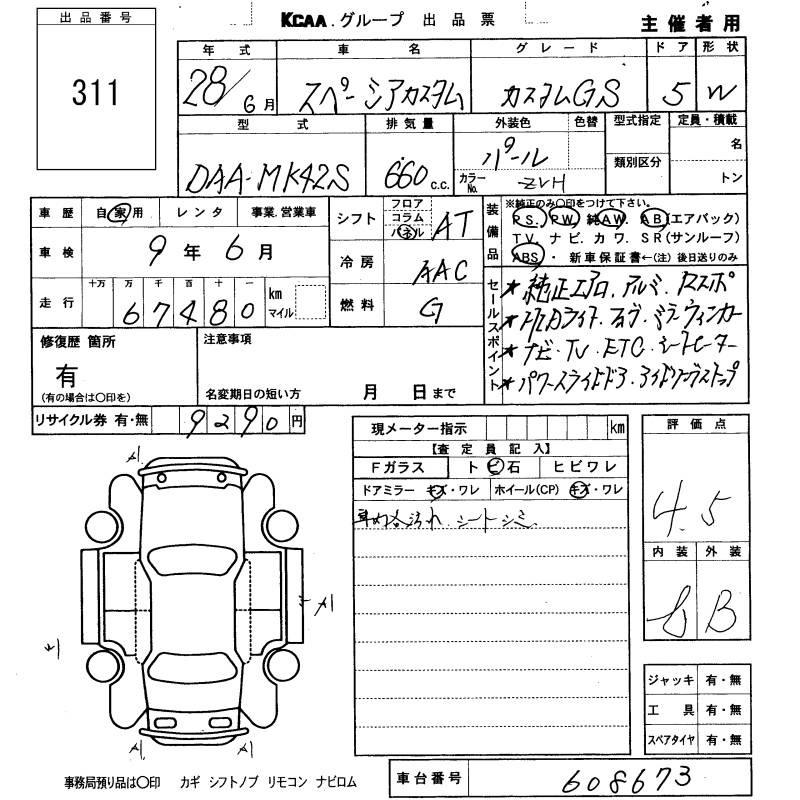 出品番号
311
KCAA.グループ 出品票
主催者用
年式 車名 グレード ドア 形状
28/6月 スペーシアカスタム カスタムGS 5 W
型式 排気量 外装色 色替 型式指定 定員・積載
DAA-MK42S 660c.c. パール
カラーNo. ZVH
類別区分
名
トン
車歴 自家用 レンタ 事業.営業車
車検 9年6月
走行 十万 万 千 百 十 一
67480 km マイル
シフト フロア コラム パネル AT
冷房 AAC
燃料 G
装備品
※純正のみ〇印をつけて下さい。
P.S. P.W. 純AW. AB(エアバック)
T.V. ナビ.カワ.SR(サンルーフ)
ABS. 新車保証書←(注)後日送りのみ
セールスポイント
★純正エアロ.アルミ.Rスポ
★HIDライト.フォグ.ミラーウィンカー
★ナビ・TV・ETC・シートヒーター
★パワースライドドア.アイドリングストップ
修復歴 箇所
有
(有の場合は〇印を)
注意事項
名変期日の短い方 月 日まで
リサイクル券 有・無 9290円
現メーター指示 km
【査定員記入】
Fガラス トビ石 ヒビワレ
ドアミラー キズ・ワレ ホイール(CP) キズ・ワレ
車内各汚れ.シートシミ.
評価点
4.5
内装 外装
B B
A1
A1
A1
A1
ジャッキ 有・無
工具 有・無
スペアタイヤ 有・無
事務局預り品は〇印 カギ シフトノブ リモコン ナビロム
車台番号 608673